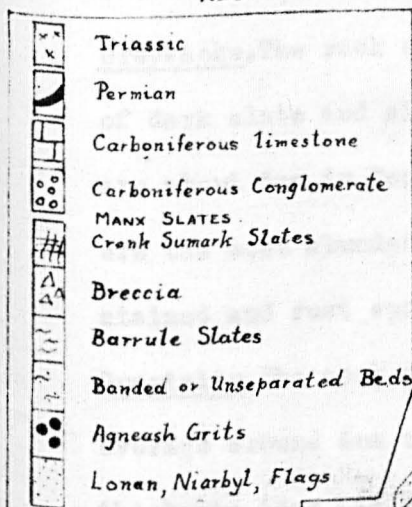 Triassic
Permian
Carboniferous limestone
Carboniferous Conglomerate
MANX SLATES
Cronk Sumark Slates
Breccia
Barrule Slates
Banded or Unseparated Beds
Agneash Grits
Lonan, Niarbyl, Flags